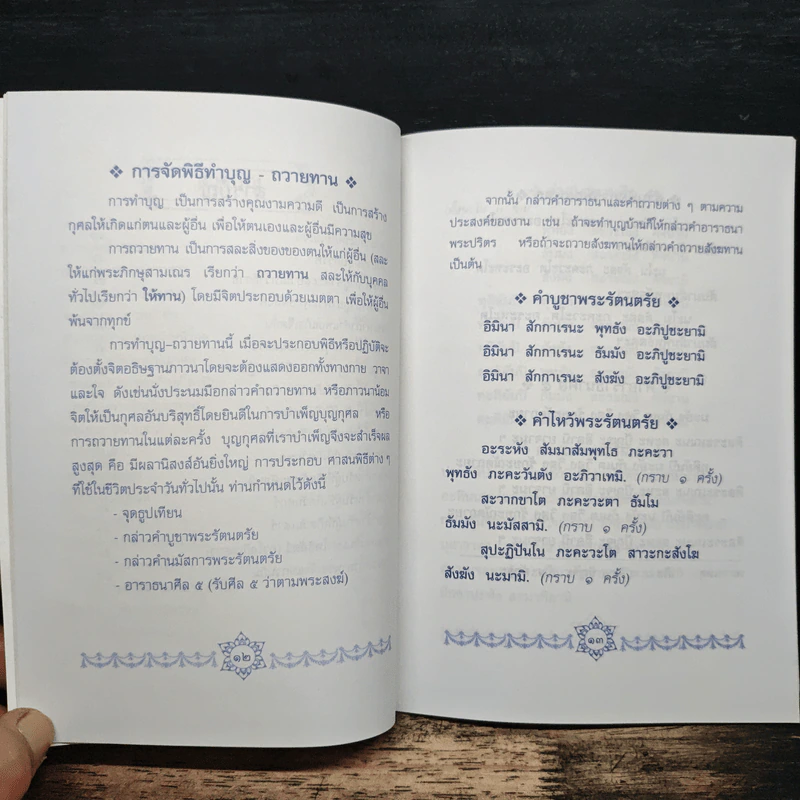 ❖ การจัดพิธีทำบุญ - ถวายทาน ❖
การทำบุญ เป็นการสร้างคุณงามความดี เป็นการสร้าง
กุศลให้เกิดแก่ตนและผู้อื่น เพื่อให้ตนเองและผู้อื่นมีความสุข
การถวายทาน เป็นการสละสิ่งของของตนให้แก่ผู้อื่น (สละ
ให้แก่พระภิกษุสามเณร เรียกว่า ถวายทาน สละให้กับบุคคล
ทั่วไปเรียกว่า ให้ทาน) โดยมีจิตประกอบด้วยเมตตา เพื่อให้ผู้อื่น
พ้นจากทุกข์
การทำบุญ-ถวายทานนี้ เมื่อจะประกอบพิธีหรือปฏิบัติจะ
ต้องตั้งจิตอธิษฐานภาวนาโดยจะต้องแสดงออกทั้งทางกาย วาจา
และใจ ดังเช่นนั่งประนมมือกล่าวคำถวายทาน หรือภาวนาน้อม
จิตให้เป็นกุศลอันบริสุทธิ์โดยยินดีในการบำเพ็ญบุญกุศล หรือ
การถวายทานในแต่ละครั้ง บุญกุศลที่เราบำเพ็ญจึงจะสำเร็จผล
สูงสุด คือ มีผลานิสงส์อันยิ่งใหญ่ การประกอบ ศาสนพิธีต่าง ๆ
ที่ใช้ในชีวิตประจำวันทั่วไปนั้น ท่านกำหนดไว้ดังนี้
- จุดธูปเทียน
- กล่าวคำบูชาพระรัตนตรัย
- กล่าวคำนมัสการพระรัตนตรัย
- อาราธนาศีล ๕ (รับศีล ๕ ว่าตามพระสงฆ์)
๑๒
จากนั้น กล่าวคำอาราธนาและคำถวายต่าง ๆ ตามความ
ประสงค์ของงาน เช่น ถ้าจะทำบุญบ้านก็ให้กล่าวคำอาราธนา
พระปริตร หรือถ้าจะถวายสังฆทานให้กล่าวคำถวายสังฆทาน
เป็นต้น
❖ คำบูชาพระรัตนตรัย ❖
อิมินา สักกาเรนะ พุทธัง อะภิปูชะยามิ
อิมินา สักกาเรนะ ธัมมัง อะภิปูชะยามิ
อิมินา สักกาเรนะ สังฆัง อะภิปูชะยามิ
❖ คำไหว้พระรัตนตรัย ❖
อะระหัง สัมมาสัมพุทโธ ภะคะวา
พุทธัง ภะคะวันตัง อะภิวาเทมิ. (กราบ ๑ ครั้ง)
สะวากขาโต ภะคะวะตา ธัมโม
ธัมมัง นะมัสสามิ. (กราบ ๑ ครั้ง)
สุปะฏิปันโน ภะคะวะโต สาวะกะสังโฆ
สังฆัง นะมามิ. (กราบ ๑ ครั้ง)
๑๓